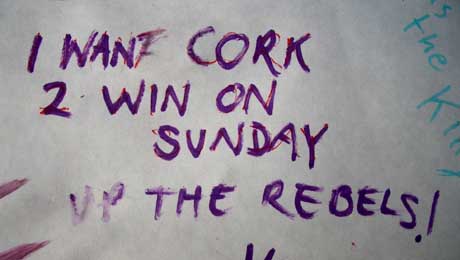 I WANT CORK
2 WIN ON
SUNDAY
UP THE REBELS!
the